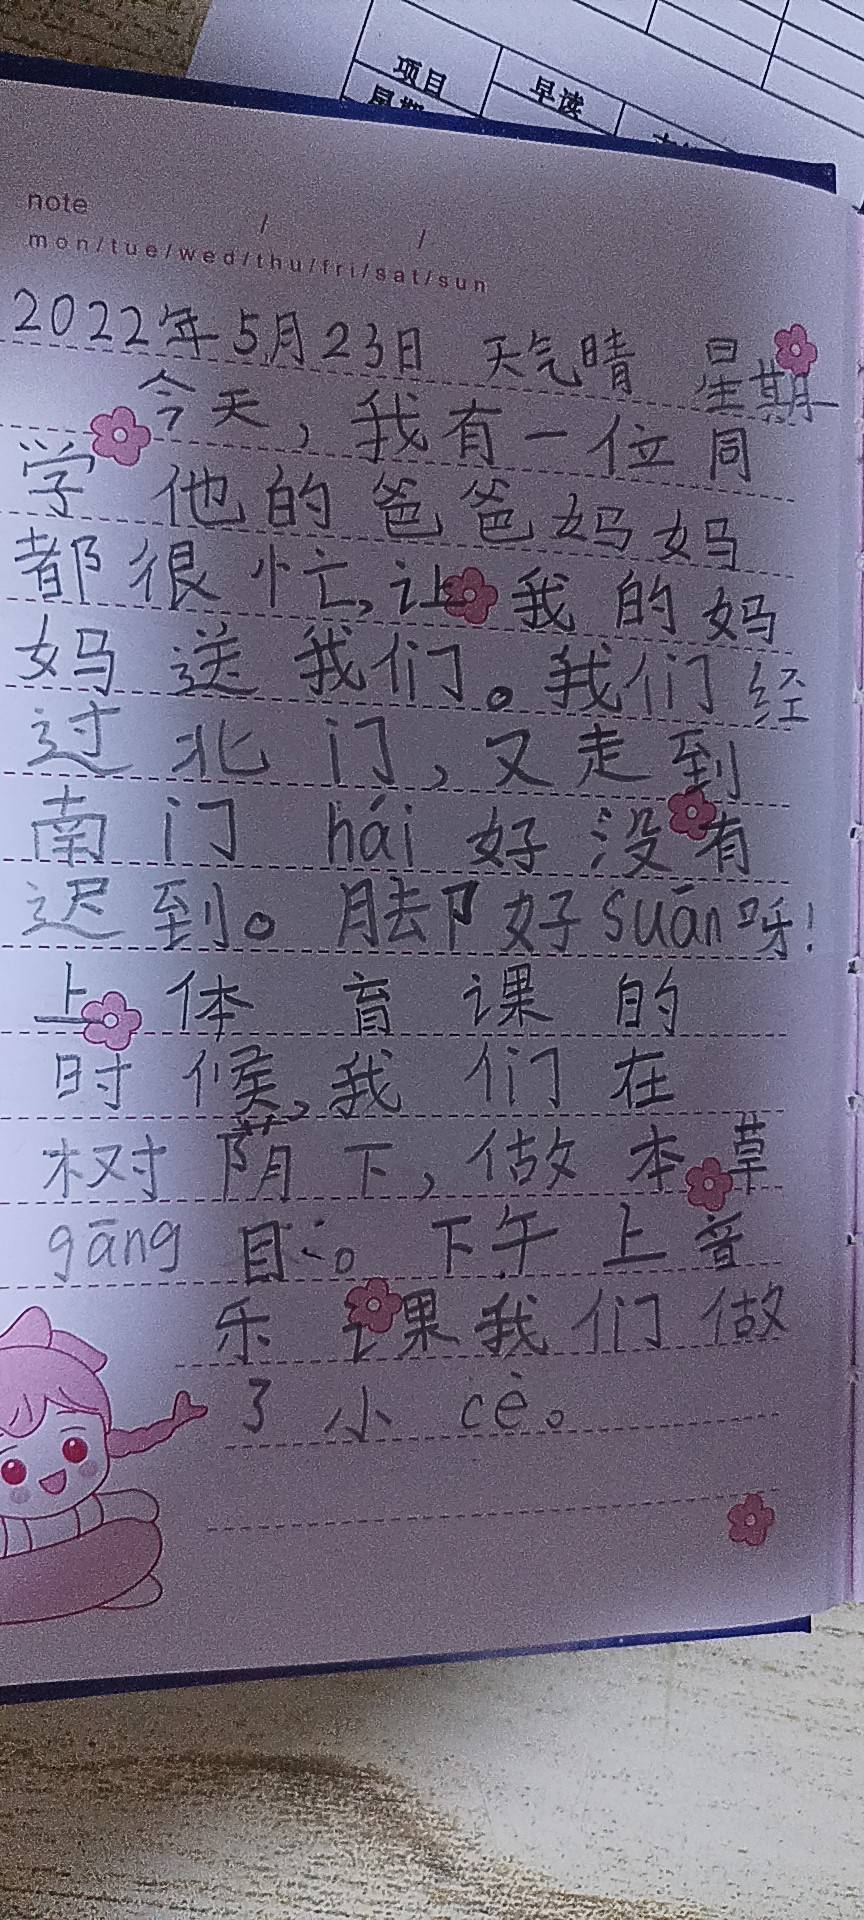 项目
早读
星期
note
/ /
mon/tue/wed/thu/fri/sat/sun
2022年5月23日 天气晴 星期一
今天，我有一位同
学 他的爸爸妈妈
都很忙，让我的妈
妈送我们。我们经
过北门，又走到
南门 hái 好没有
迟到。脚好suān呀！
上体育课的
时候，我们在
树荫下，做本草
gāng 目。下午上音
乐课我们做
了小cè。